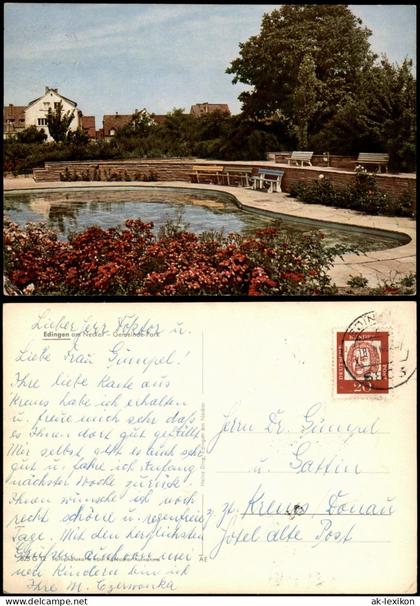 Edingen am Neckar - Gemeinde-Park
Lieber Herr Doktor u.
Liebe Frau Gümpel!
Ihre liebe Karte aus
Krems habe ich erhalten
u. freue mich sehr daß
es Ihnen dort gut gefällt.
Mir selbst geht es auch sehr
gut u. fahre ich Anfang
nächster Woche zurück.
Ihnen wünsche ich noch
recht schöne u. regenfreie
Tage. Mit den herzlichsten
Grüßen auch von mei
nen Kindern bin ich
Ihre M. Czerwonka
Herrn Dr. Gümpel
u. Gattin
z. Zt. Krems Donau
Hotel alte Post
DEUTSCHE BUNDESPOST
20
EDINGEN
AE
ak-lexikon © www.ak-lexikon.de
ak-lexikon.com